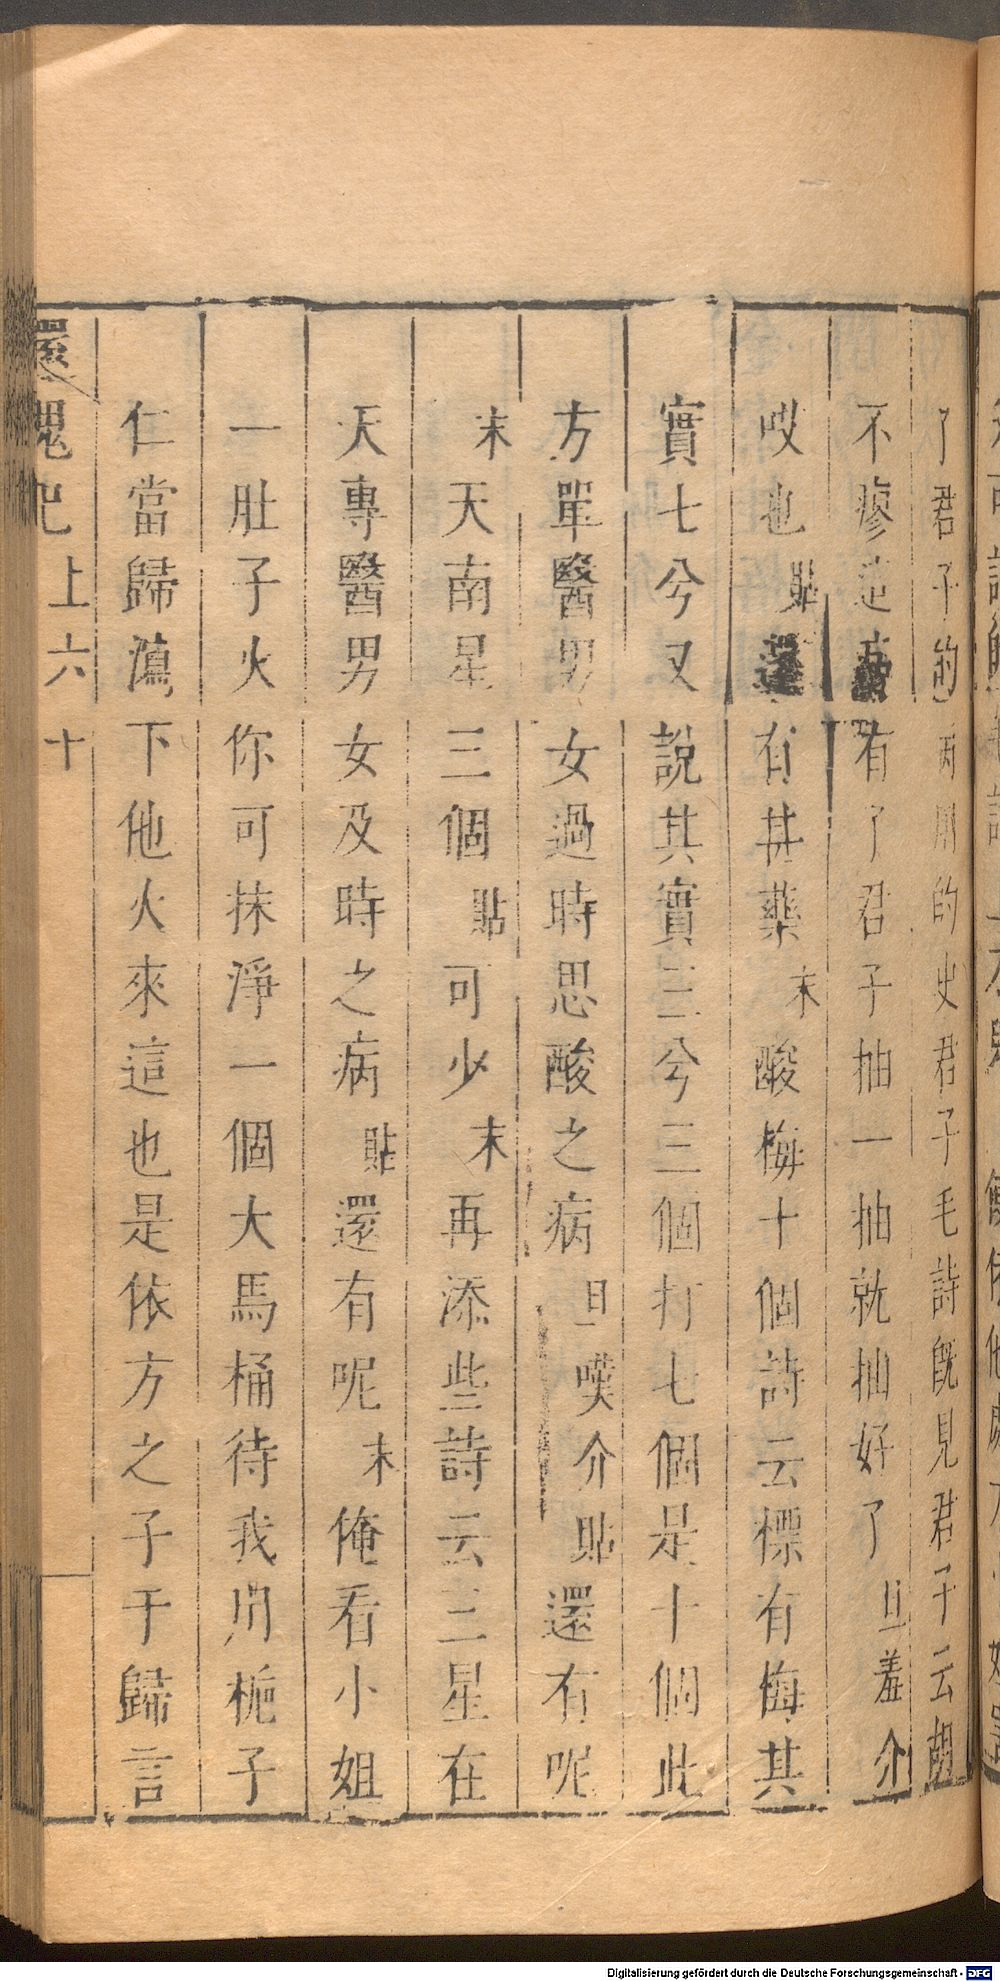 了君子的病用的史君子毛詩旣見君子云胡
不瘳這病有了君子抽一抽就抽好了旦羞介
哎也貼還有甚藥末酸梅十個詩云摽有梅其
實七兮又說其實三兮三個打七個是十個此
方單醫男女過時思酸之病旦嘆介貼還有呢
末天南星三個貼可少末再添些詩云三星在
天專醫男女及時之病貼還有呢末俺看小姐
一肚子火你可抹淨一個大馬桶待我用梔子
仁當歸瀉下他火來這也是依方之子于歸言
還魂記上 六十
Digitalisierung gefördert durch die Deutsche Forschungsgemeinschaft - DFG